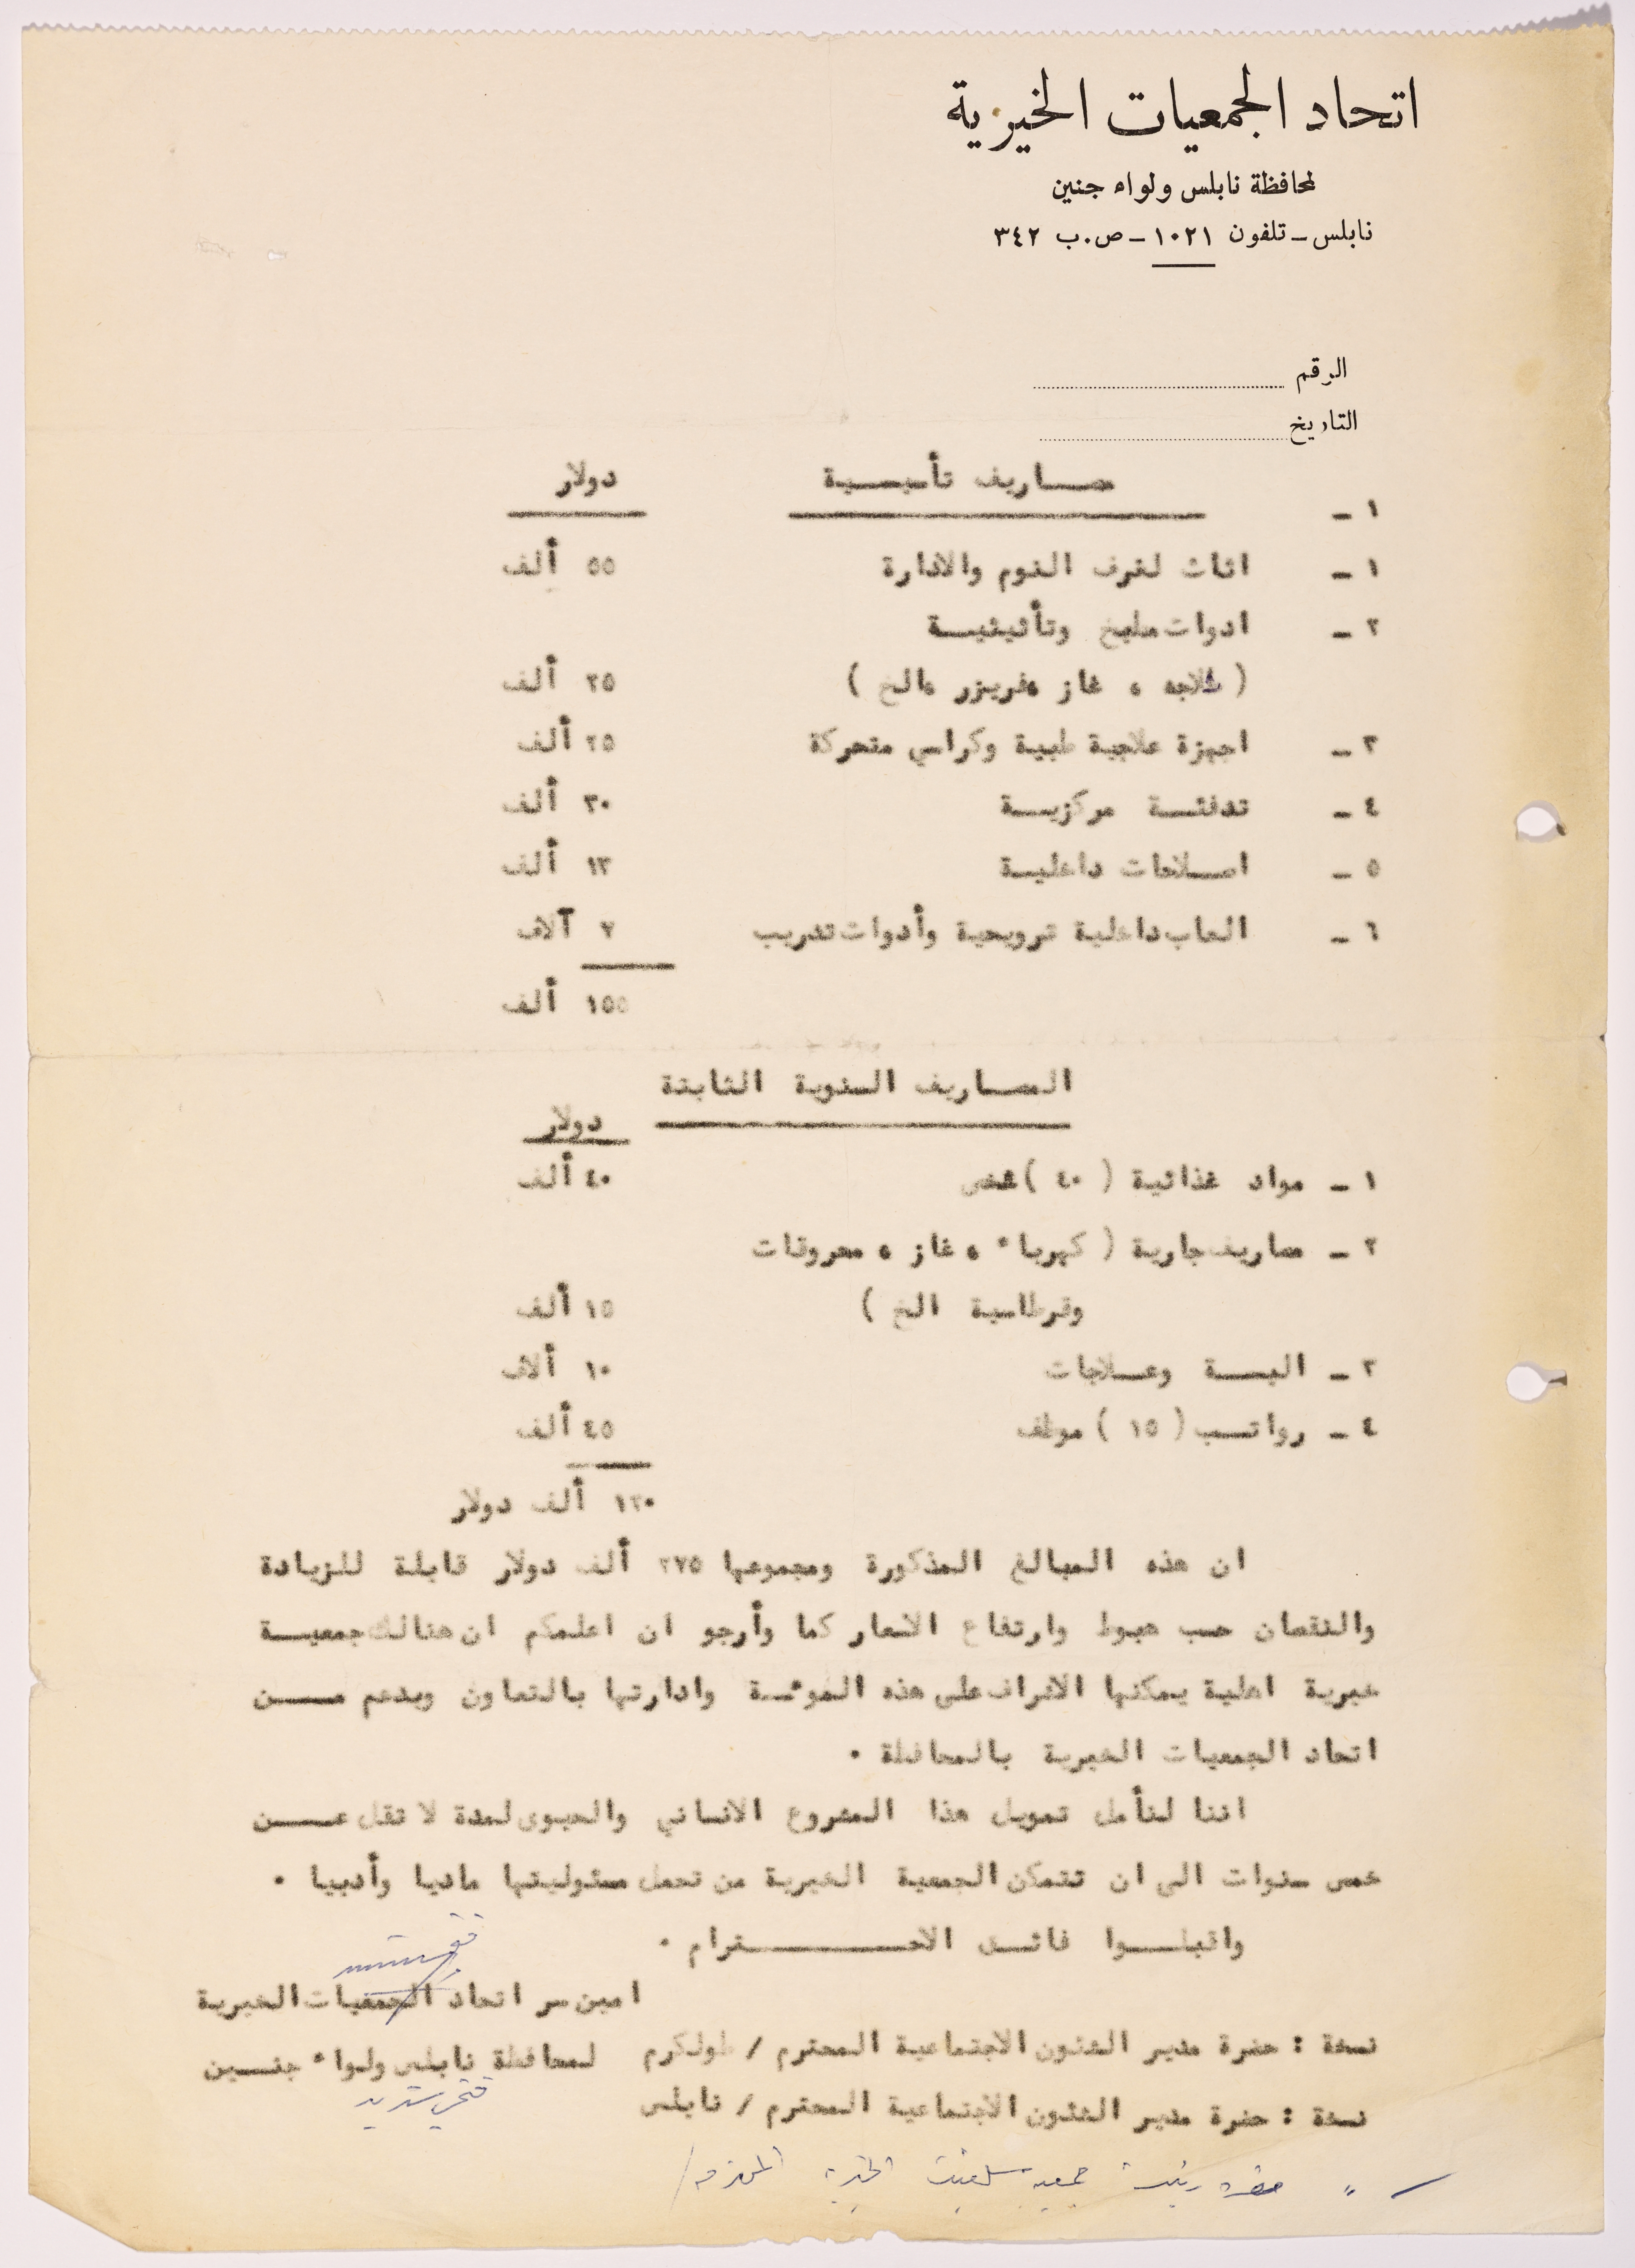 اتحاد الجمعيات الخيرية
لمحافظة نابلس ولواء جنين
نابلس - تلفون ١٠٢١ - ص.ب ٣٤٢
الرقم
التاريخ
١ - مصاريف تأسيسية دولار
١ - اثاث لغرف النوم والادارة ٥٥ ألف
٢ - ادوات مطبخ وتأثيثية
( ثلاجه ، غاز ،فريزر ،الخ ) ٢٥ ألف
٣ - اجهزة علاجية طبية وكراسي متحركة ٢٥ ألف
٤ - تدفئة مركزية ٣٠ ألف
٥ - اصلاحات داخلية ١٣ ألف
٦ - العاب داخلية ترويحية وأدوات تدريب ٧ آلاف
١٥٥ ألف
المصاريف السنوية الثابتة
دولار
١ - مواد غذائية ( ٤٠ ) شخص ٤٠ ألف
٢ - مصاريف جارية ( كهرباء ، غاز ، محروقات
وقرطاسية الخ ) ١٥ ألف
٣ - البسة وعلاجات ١٠ ألاف
٤ - رواتب ( ١٥ ) موظف ٤٥ ألف
١٢٠ ألف دولار
ان هذه المبالغ المذكورة ومجموعها ٢٧٥ ألف دولار قابلة للزيادة
والنقصان حسب هبوط وارتفاع الاسعار كما وأرجو ان اعلمكم ان هنالك جمعية
خيرية اهلية يمكنها الاشراف على هذه المؤسسة وادارتها بالتعاون وبدعم من
اتحاد الجمعيات الخيرية بالمحافظة .
اننا لنأمل تمويل هذا المشروع الانساني والحيوى لمدة لا تقل عن
خمس سنوات الى ان تتمكن الجمعية الخيرية من تحمل مسئوليتها ماديا وأدبيا .
واقبلوا فائق الاحترام .
امين سر اتحاد الجمعيات الخيرية
لمحافظة نابلس ولواء جنين
نسخة : حضرة مدير الشئون الاجتماعية المحترم / طولكرم
نسخة : حضرة مدير الشئون الاجتماعية المحترم / نابلس
" حضرة رئيسة جمعية سلفيت الخيرية المحترمة /